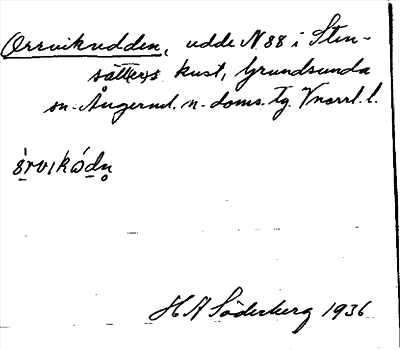 Orrvikudden, udde N 88 i Sten-
sätters kust, Grundsunda
sn. Ångerml. n. doms. tg. Vnorrl. l.
H A Söderberg 1936